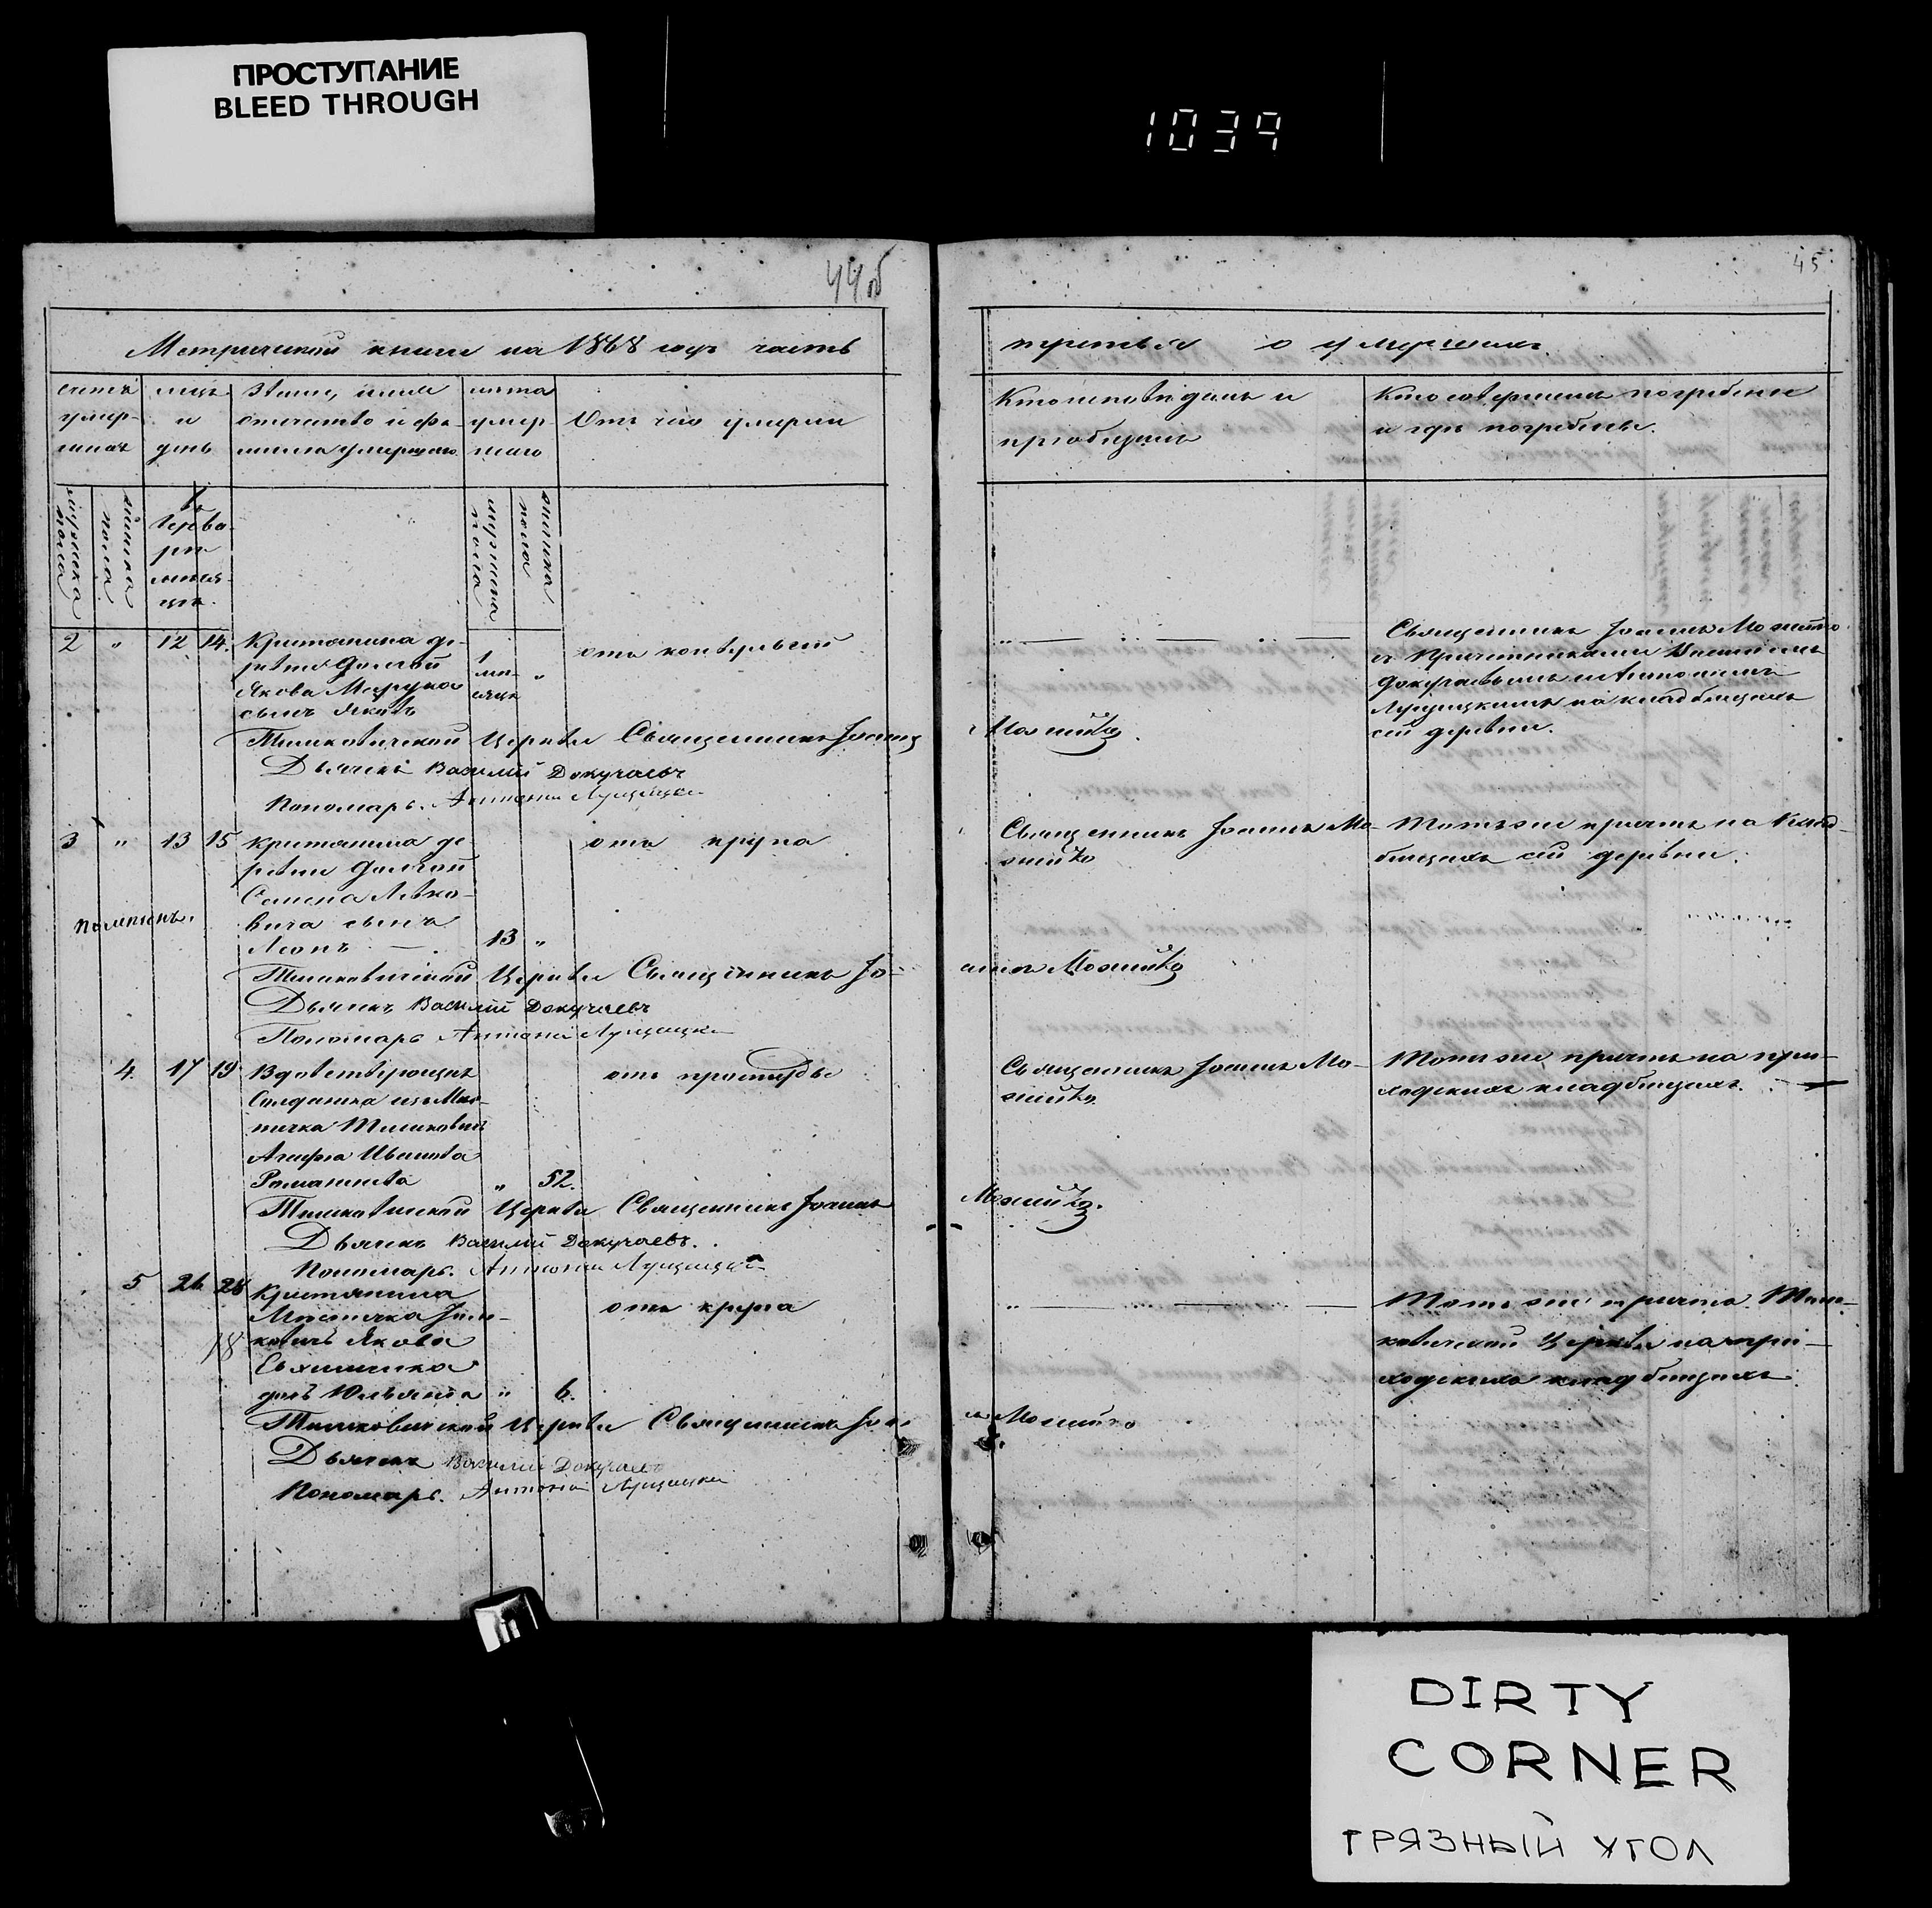 ПРОСТУПАНИЕ
BLEED THROUGH
1039
44об
45
Метрической книги на 1868 годъ часть
третья о умершихъ
счетъ умер- шихъ
мцъ и день
Званіе, имя отчество и фа- милія умершаго
лѣта умер- шаго
Отъ чего умерли
Кто исповѣдалъ и пріобщалъ
Кто совершилъ погребеніе и гдѣ погребены.
мужеска пола
женска пола
въ Февра- рѣ мѣся- цѣ.
мужеска пола
женска пола
2 " 12 14. Крестьянина де-
ревни Долгой
Якова
сынъ Яковъ
1 мѣ- сяцъ "
отъ конвульсій
Священникъ Іоаннъ Можейко
съ Причетниками Василіемъ
Докучаевымъ и Антоніемъ
на кладбищахъ
сей деревни.
Тимковичской Церкви Священникъ Іоаннъ Можейко.
Дьячекъ Василій Докучаевъ
Пономарь. Антоній
3 " 13 15 Крестьянина де
ревни Долгой
Семена Левко-
вича сынъ
Леонъ — 13 "
отъ крупа
Священникъ Іоаннъ Мо-
жейко
Тотъ же причтъ на клад-
бищахъ сей деревни.
Тимковичской Церкви Священникъ Іо- аннъ Можейко
Дьячекъ Василій Докучаевъ
Пономарь Антоній
4. 17 19 Вдовствующая
Солдатка изъ Мѣс-
течка Тимковичъ
Агафія Иванова
Романова " 52.
отъ простуды
Священникъ Іоаннъ Мо-
жейко.
Тотъ же причтъ на при-
ходскихъ кладбищахъ.
Тимковичской Церкви Священникъ Іоаннъ Можейко.
Дьячекъ Василій Докучаевъ.
Пономарь. Антоній
5 26 28 Крестьянина
Мѣстечка Тим-
ковичъ Якова
дочь Юльянна " 6.
18
отъ крупа
Тотъ же причтъ Тим-
ковичской Церкви на при-
ходскихъ кладбищахъ.
Тимковичской Церкви Священникъ Іоан- нъ Можейко
Дьячекъ Василій Докучаевъ
Пономарь. Антоній
DIRTY
CORNER
ГРЯЗНЫЙ УГОЛ